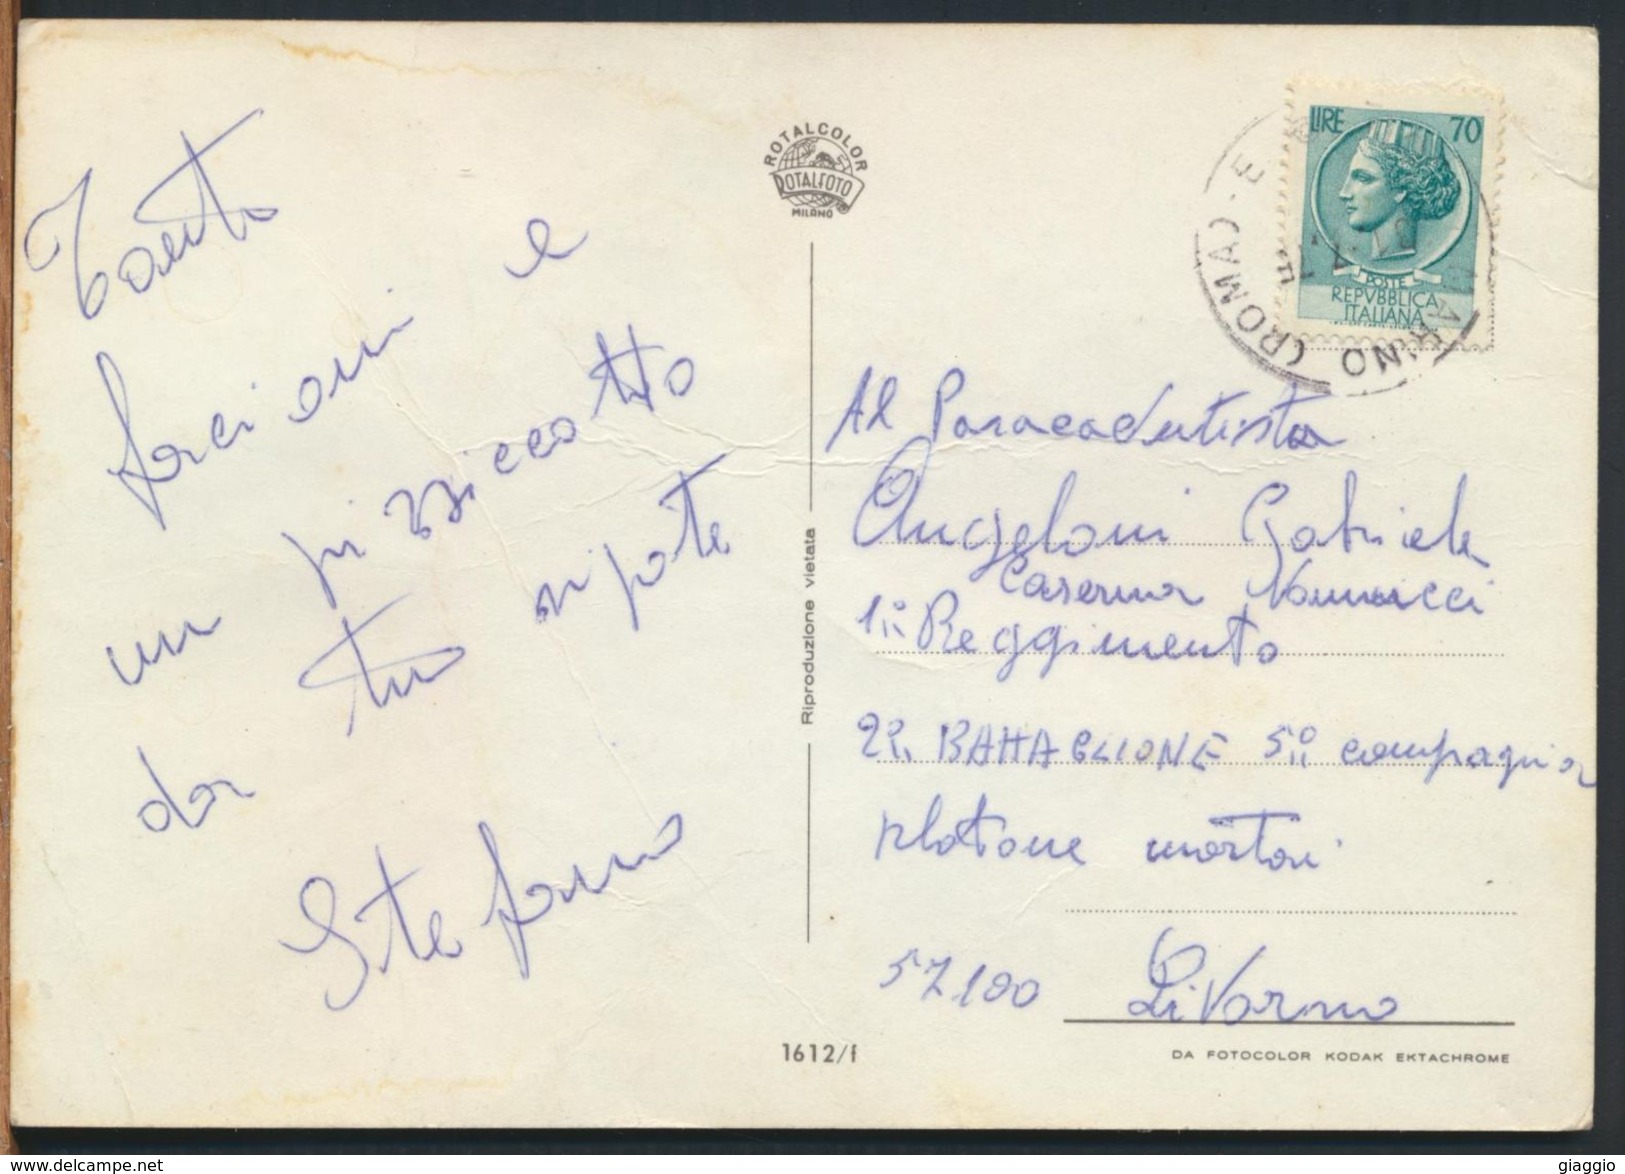 Tanti
bacioni e
un pizzicotto
tuo nipote
da
Stefano
ROTALCOLOR
ROTALFOTO
MILANO
Riproduzione vietata
1612/f
LIRE 70
POSTE
REPVBBLICA
ITALIANA
(ROMA)
Al Paracadutista
Angeloni Gabriele
Caserma Vannucci
1° Reggimento
2° BATTAGLIONE 5° compagnia
plotone mortai
57100 Livorno
DA FOTOCOLOR KODAK EKTACHROME
giaggio